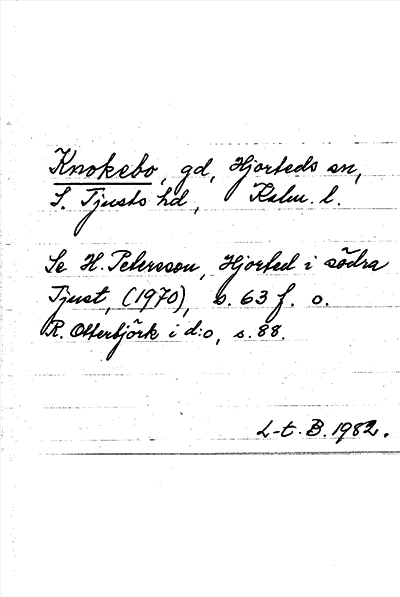 Knokebo, gd, Hjorteds sn,
S. Tjusts hd, Kalm. l.
Se H. Petersson, Hjorted i södra
Tjust, (1970), s. 63 f. o.
R. Otterbjörk i d:o, s. 88.
L-t. B. 1982.